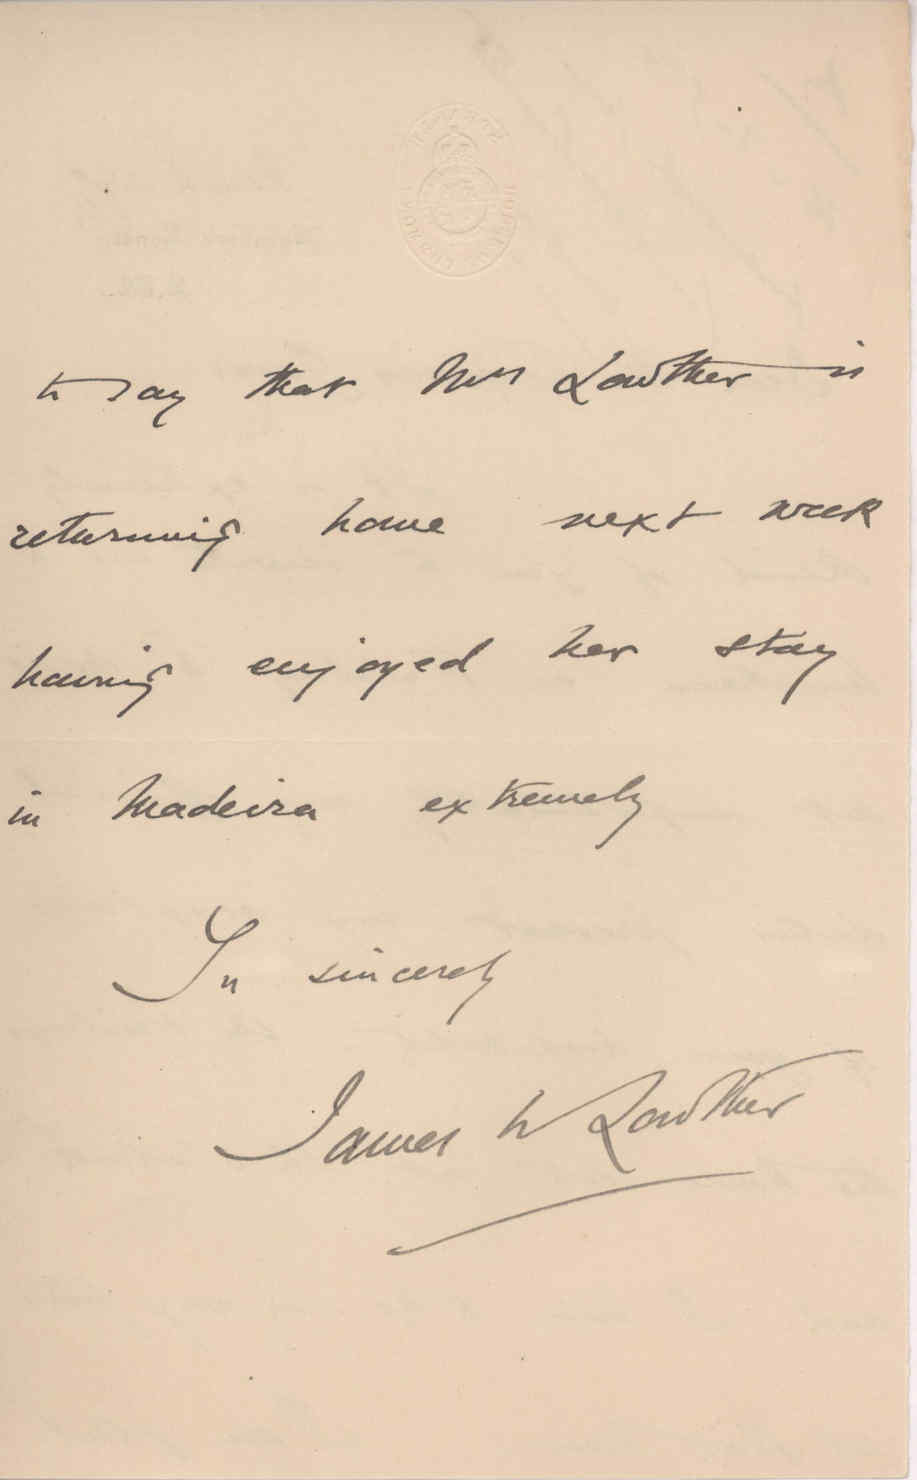 to say that Mrs Lowther is
returning home next week
having enjoyed her stay
in Madeira extremely
Yrs sincerely
James W Lowther